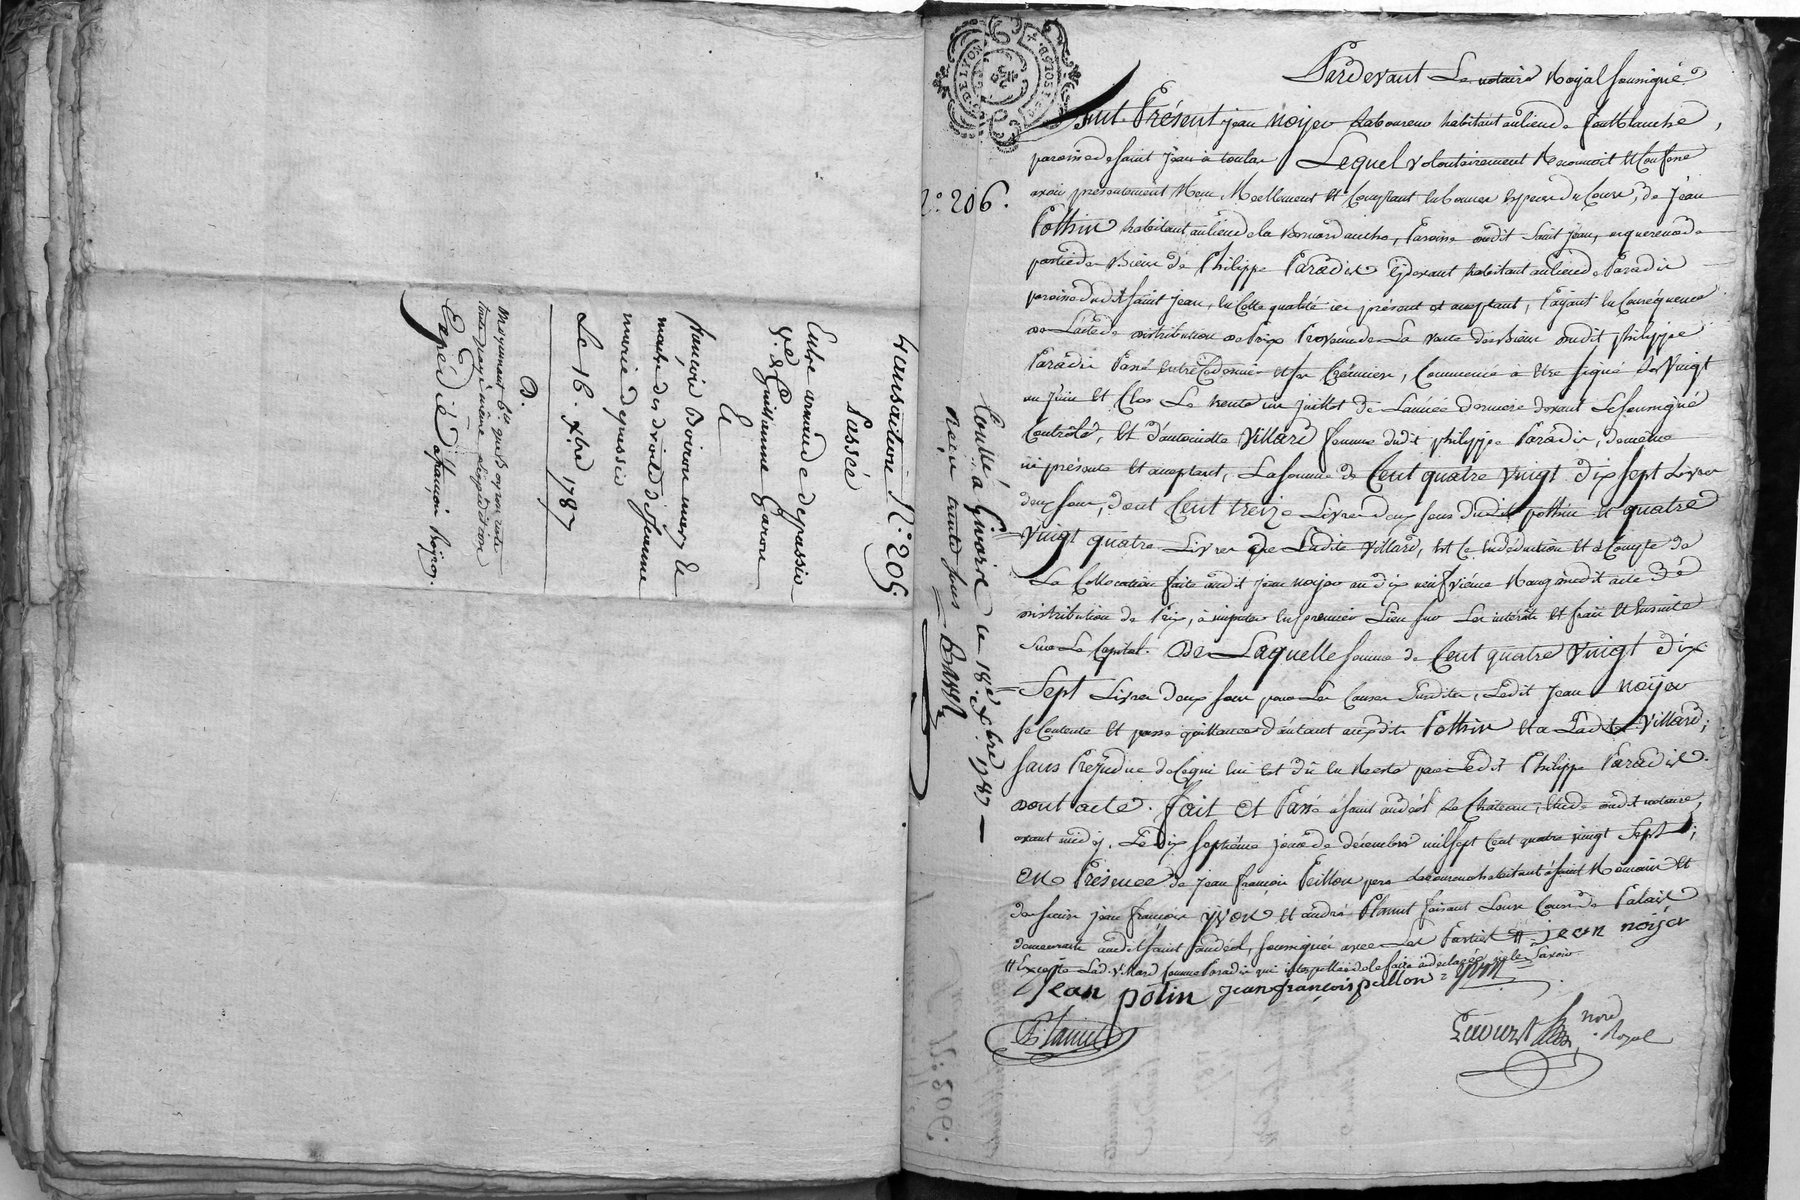 transaction N.° 205
Passée
Entre armande depassio
V.e de Guillienne Garon
&
françois Boiron mary &
maitre des droits de Jeanne
marie depassio
Le 16. xbre 1787
Expédié à françois Boiron.
N.° 206.
Controllé à Givors le 18.e xbre 1787
Reçu trente sous
Pardevant Le notaire Royal soussigné
Fut Présent jean Noyer Laboureur habitant au lieu de fontblanche,
paroisse de saint jean à toulas Lequel volontairement Reconnoit et Confesse
avoir présentement Reçu, Réellement et Comptant en bonnes espèces du Cours, de jean
Pothin habitant au lieu de la Bernardanche, Paroisse dudit Saint jean, acquereur de
partie des Biens de Philippe Paradis cydevant habitant au lieu de Paradis
paroisse dudit Saint jean, en Cette qualité ici présent et acceptant, Payant en Conséquence
de L'acte de distribution de Prix Provenu de La vente des biens dudit philippe
Paradis Passé Entre Ce dernier et ses Créanciers, Commencé à être signé Le Vingt
un juin et Clos Le trente un juillet de L'année derniere devant Le soussigné
Controllé, et d'antoinette Villard femme dudit philippe Paradis, de même
ici présente et acceptant, La somme de Cent quatre vingt dix sept Livres
deux sous, dont Cent treize Livres deux sous dudit pothin et quatre
Vingt quatre Livres de Ladite Villard, Et Ce en déduction et à Compte de
La Collocation faite audit jean noyer au dix neufvième Rang dudit acte de
distribution de Prix, à imputer en premier Lieu sur Les intérêts et frais et Ensuite
sur Le Capital. De Laquelle somme de Cent quatre Vingt dix
Sept Livres deux sous pour Les Causes susdites, Ledit jean Noyer
se Contente et passe quittance d'autant auxdits Pothin et a Ladite Villard;
sans Préjudice de Ce qui lui est dû en Reste par Ledit Philippe Paradis.
dont acte. Fait et Passé à saint andéol Le Château, étude dudit notaire,
avant midy, Le dix septième jour de décembre mil sept Cent quatre vingt Sept;
En Présence de jean françois Peillon père Laboureur habitant à saint Romain et
de sieurs jean françois yvon et andré Flamet faisant Leur Cours de Palais
demeurants audit saint andéol, soussignés avec Les Parties # jean noyer
# Excepté Lad. Villard femme Paradis qui interpellée de le faire à déclaré ne le savoir
jean potin jean françois peillon yvon
nore Royal